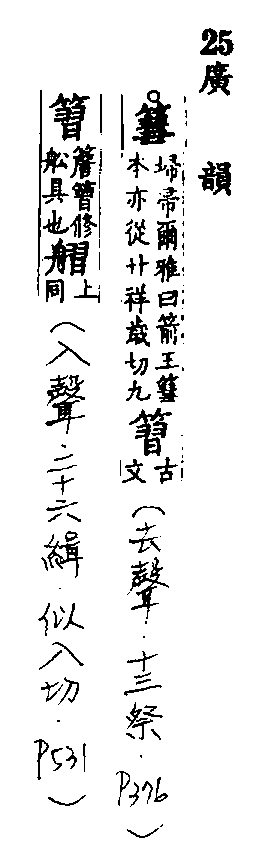 25廣韻
篲
埽帚爾雅曰葥王篲
本亦從廿祥歲切九
古
文
（去聲．十三祭．P376）
修
舩具也
上
同
（入聲．二十六緝．似入切．P531）